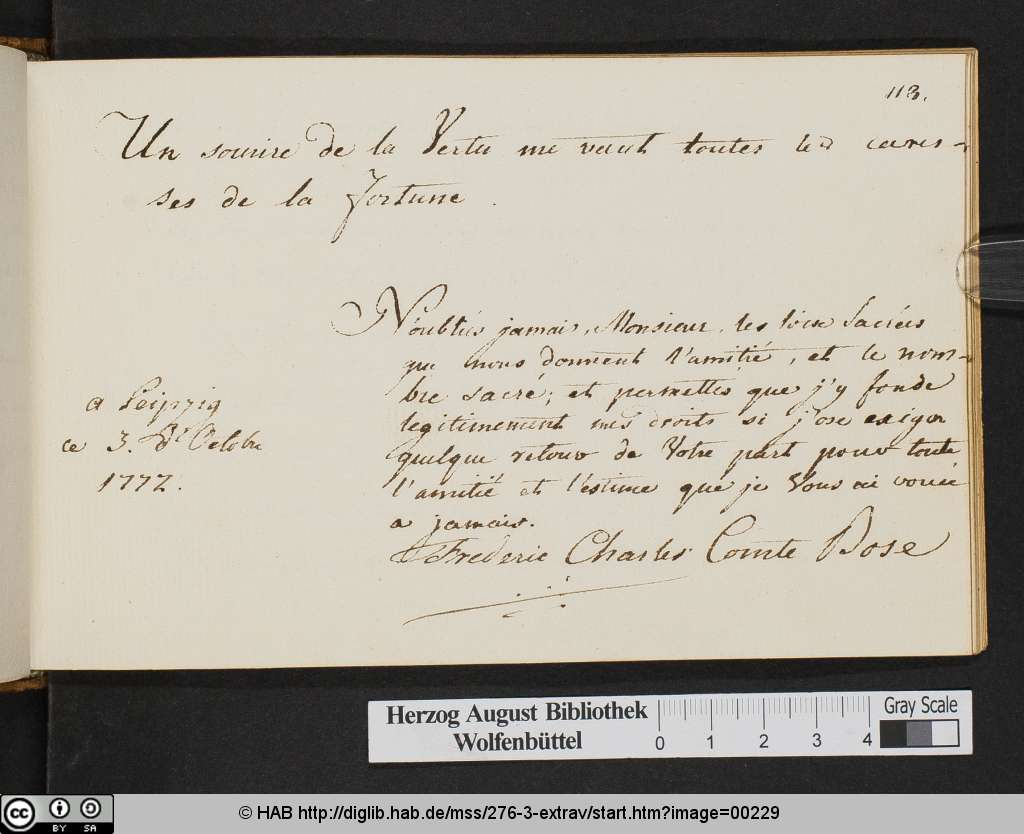 113.
Un sourire de la Vertu me vaut toutes les cares-
ses de la Fortune.
N'oubliés jamais, Monsieur, les loix Sacrées
que nous donnent l'amitié, et le nom-
bre sacré; et permettes que j'y fonde
legitimement mes droits si j'ose exiger
quelque retour de Votre part pour toute
l'amitié et l'estime que je Vous ai vouée
a jamais.
Frederic Charles Comte Bose
a Leipzig
ce 3. d' Octobr
1772.
Herzog August Bibliothek
Wolfenbüttel
0 1 2 3 4
Gray Scale
cc BY SA
© HAB http://diglib.hab.de/mss/276-3-extrav/start.htm?image=00229